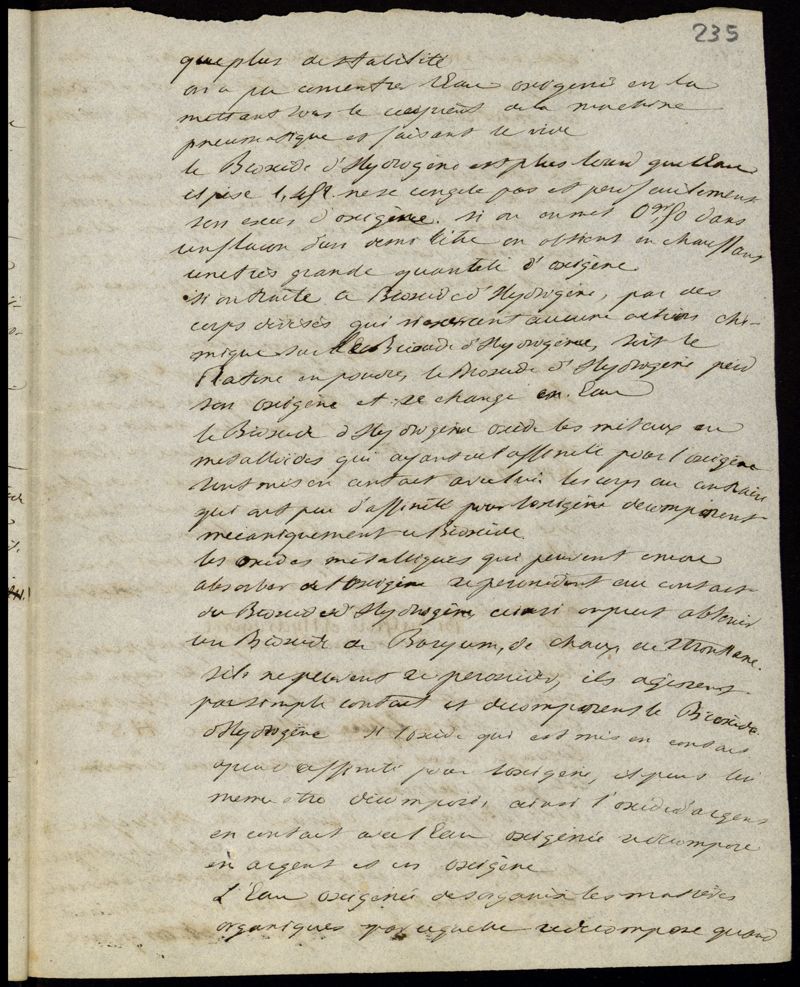 235
que plus de stabilité
on a pu concentrer l'Eau oxigenée en la
mettant sous le recipient de la machine
pneumatique et faisant le vide
le Bioxide d'Hydrogène est plus lourd que l'Eau
il pèse 1,452. ne se congele pas et perd facilement
son exces d'oxigène. si on en met 0gr50 dans
un flacon d'un demi litre on obtient en chauffant
une très grande quantité d'oxigène
si on traite ce Bioxide d'Hydrogène, par des
corps divisés qui n'exercent aucune action chi-
mique sur le Bioxide d'Hydrogène, soit le
Platine en poudre, le Bioxide d'Hydrogène perd
son oxigène et se change en Eau
le Bioxide d'Hydrogène oxide les métaux ou
metalloides qui ayant cet affinité pour l'oxigène
sont mis en contact avec lui. les corps au contraire
qui ont peu d'affinité pour l'oxigène décomposent
mécaniquement ce Bioxide.
les oxides métalliques qui peuvent encore
absorber de l'oxigène se peroxident au contact
du Bioxide d'Hydrogène, ainsi on peut obtenir
un Bioxide de Baryum, de chaux, de Strontiane.
s'ils ne peuvent se peroxider, ils agissent
par simple contact et décomposent le Bioxide
d'Hydrogène si l'oxide qui est mis en contact
a peu d'affinité pour l'oxigène, il peut lui
meme etre décomposé, ainsi l'oxide d'argent
en contact avec l'Eau oxigenée se décompose
en argent et en oxigène
L'Eau oxigenée desorganise les matières
organiques par laquelle se décompose quand